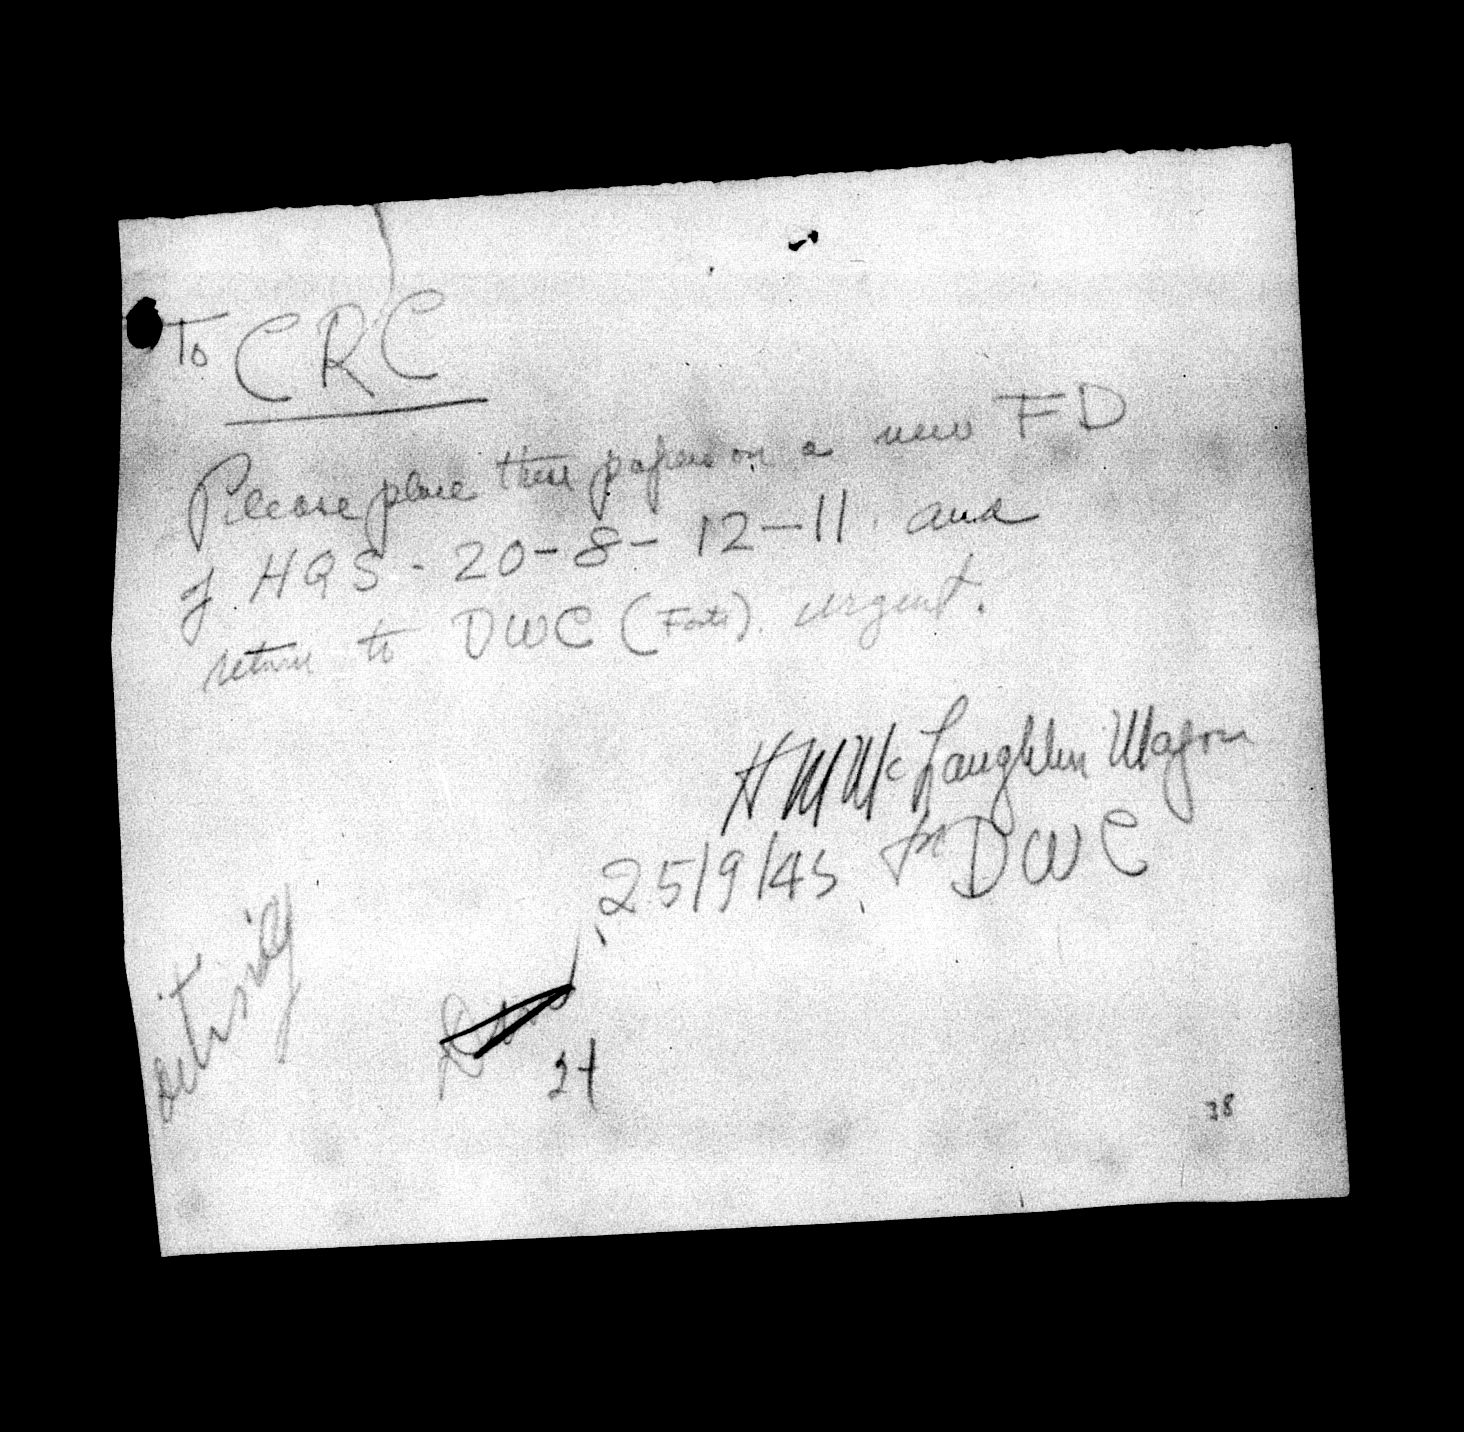 To CRC
Please place these papers on a new FD
of HQS-20-8-12-11. and
return to DWC (Forts). urgent.
H M McLaughlin Major
25/9/45 for DWC
24
38